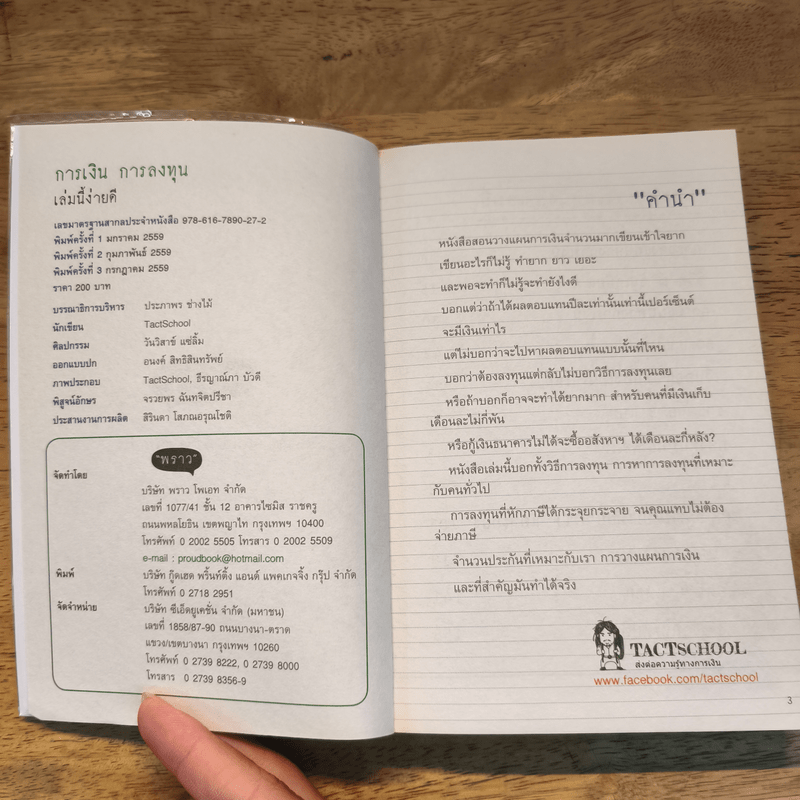 การเงิน การลงทุน
เล่มนี้ง่ายดี
เลขมาตรฐานสากลประจำหนังสือ 978-616-7890-27-2
พิมพ์ครั้งที่ 1 มกราคม 2559
พิมพ์ครั้งที่ 2 กุมภาพันธ์ 2559
พิมพ์ครั้งที่ 3 กรกฎาคม 2559
ราคา 200 บาท
บรรณาธิการบริหาร ประภาพร ช่างไม้
นักเขียน TactSchool
ศิลปกรรม วันวิสาข์ แซ่ลิ้ม
ออกแบบปก อนงค์ สิทธิสินทรัพย์
ภาพประกอบ TactSchool, ธีรญาณ์ภา บัวดี
พิสูจน์อักษร จรวยพร ฉันทจิตปรีชา
ประสานงานการผลิต สิรินดา โสภณอรุณโชติ
"พราว"
จัดทำโดย
บริษัท พราว โพเอท จำกัด
เลขที่ 1077/41 ชั้น 12 อาคารไซมิส ราชครู
ถนนพหลโยธิน เขตพญาไท กรุงเทพฯ 10400
โทรศัพท์ 0 2002 5505 โทรสาร 0 2002 5509
e-mail : proudbook@hotmail.com
พิมพ์ บริษัท กู๊ดเฮด พริ้นท์ติ้ง แอนด์ แพคเกจจิ้ง กรุ๊ป จำกัด
โทรศัพท์ 0 2718 2951
จัดจำหน่าย บริษัท ซีเอ็ดยูเคชั่น จำกัด (มหาชน)
เลขที่ 1858/87-90 ถนนบางนา-ตราด
แขวง/เขตบางนา กรุงเทพฯ 10260
โทรศัพท์ 0 2739 8222, 0 2739 8000
โทรสาร 0 2739 8356-9
"คำนำ"
หนังสือสอนวางแผนการเงินจำนวนมากเขียนเข้าใจยาก
เขียนอะไรก็ไม่รู้ ทำยาก ยาว เยอะ
และพอจะทำก็ไม่รู้จะทำยังไงดี
บอกแต่ว่าถ้าได้ผลตอบแทนปีละเท่านั้นเท่านี้เปอร์เซ็นต์
จะมีเงินเท่าไร
แต่ไม่บอกว่าจะไปหาผลตอบแทนแบบนั้นที่ไหน
บอกว่าต้องลงทุนแต่กลับไม่บอกวิธีการลงทุนเลย
หรือถ้าบอกก็อาจจะทำได้ยากมาก สำหรับคนที่มีเงินเก็บ
เดือนละไม่กี่พัน
หรือกู้เงินธนาคารไม่ได้จะซื้ออสังหาฯ ได้เดือนละกี่หลัง?
หนังสือเล่มนี้บอกทั้งวิธีการลงทุน การหาการลงทุนที่เหมาะ
กับคนทั่วไป
การลงทุนที่หักภาษีได้กระจุยกระจาย จนคุณแทบไม่ต้อง
จ่ายภาษี
จำนวนประกันที่เหมาะกับเรา การวางแผนการเงิน
และที่สำคัญมันทำได้จริง
TACTSCHOOL
ส่งต่อความรู้ทางการเงิน
www.facebook.com/tactschool
3